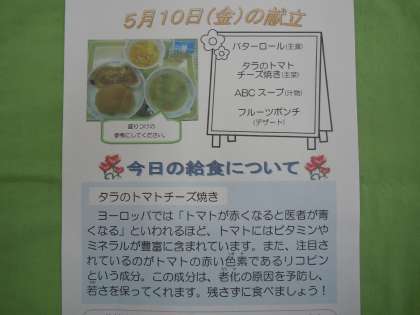 5月10日(金)の献立
バターロール(主食)
タラのトマト
チーズ焼き(主菜)
ABCスープ(汁物)
フルーツポンチ
(デザート)
盛りつけの
参考にしてください。
今日の給食について
タラのトマトチーズ焼き
ヨーロッパでは「トマトが赤くなると医者が青
くなる」といわれるほど、トマトにはビタミンや
ミネラルが豊富に含まれています。また、注目さ
れているのがトマトの赤い色素であるリコピン
という成分。この成分は、老化の原因を予防し、
若さを保ってくれます。残さずに食べましょう！